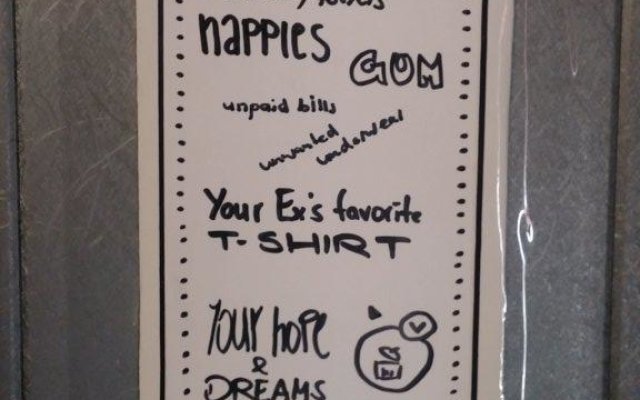 nappies
GUM
unpaid bills
unwanted
underwear
Your Ex's favorite
T-SHIRT
Your hope
&
DREAMS